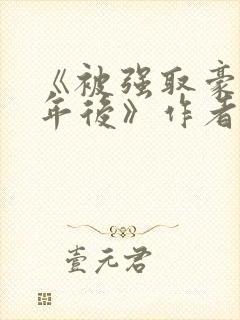 《被强取豪
年後》作者
壹元君